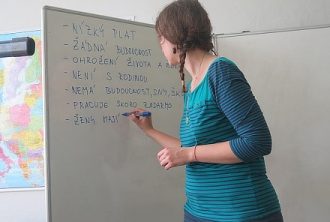 - NÍZKÝ PLAT
- ŽÁDNÁ BUDOUCNOST
- OHROŽENÍ ŽIVOTA A
- NENÍ S RODINOU
- NEMÁ BUDOUCNOST, SNY,
- PRACUJE SKORO ZADARMO
- ŽENY MAJÍ